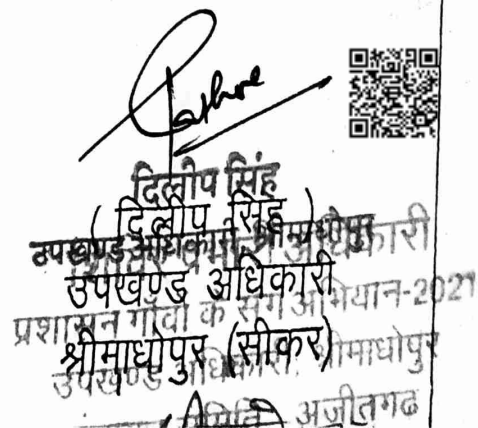 दिलीप सिंह
( दिलीप सिंह )
उपखण्ड अधिकारी, श्रीमाधोपुर
अधिकारी
उपखण्ड अधिकारी
प्रशासन गाँवों के संग अभियान-2021
श्रीमाधोपुर (सीकर)
उपखण्ड अधिकारी श्रीमाधोपुर
अजीतगढ